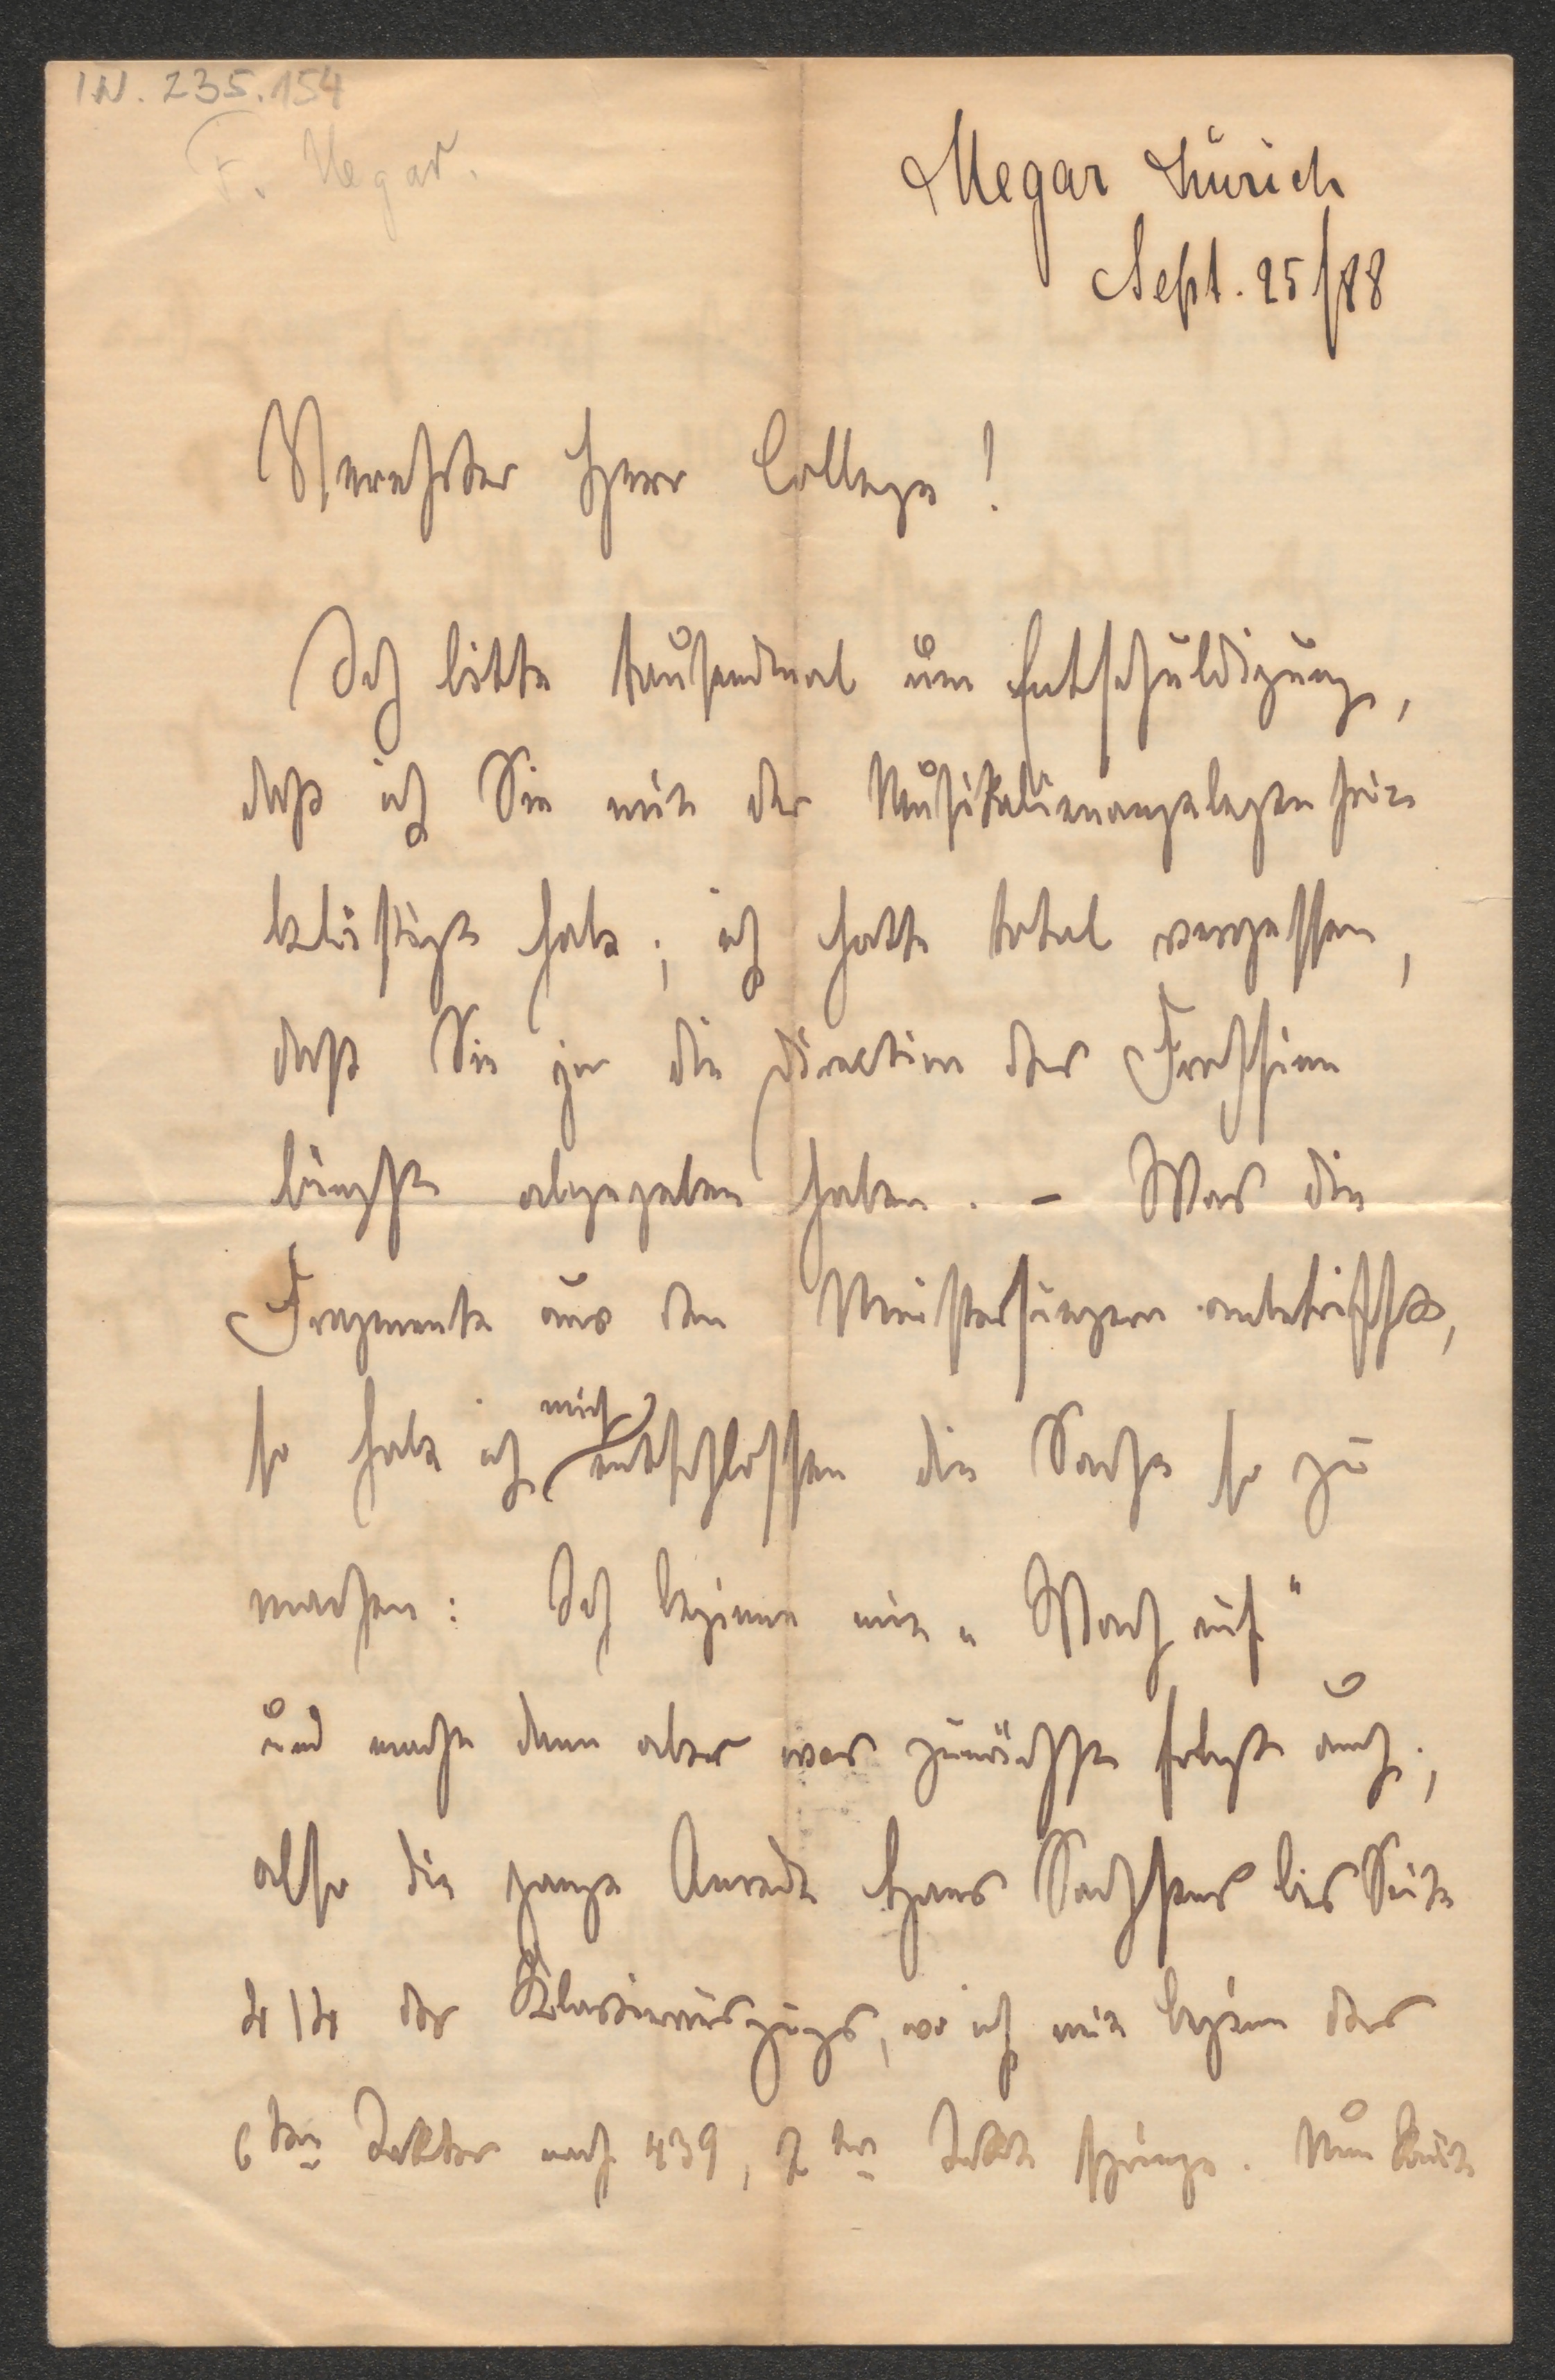 IN. 235.154
F. Hegar.
Hegar Zürich
Sept. 25/88
Verehrter Herr College!
Ich bitte tausendmal um Entschuldigung,
daß ich Sie mit der Musikalienangelegenheit
belästigt habe; ich hatte total vergessen,
daß Sie ja die Direction des Frohsinn
längst abgegeben haben. – Was die
Fragmente aus den Meistersingern anbetrifft,
so habe ich mich entschlossen die Sache so zu
machen: Ich beginne mit „Wach auf"
und mache dann aber was zunächst folgt auch;
also die ganze Anrede Hans Sachsens bis Seite
414 des Klavierauszugs, wo ich mit Beginn des
6ten Taktes nach 439, 2ter Takt springe. Nun